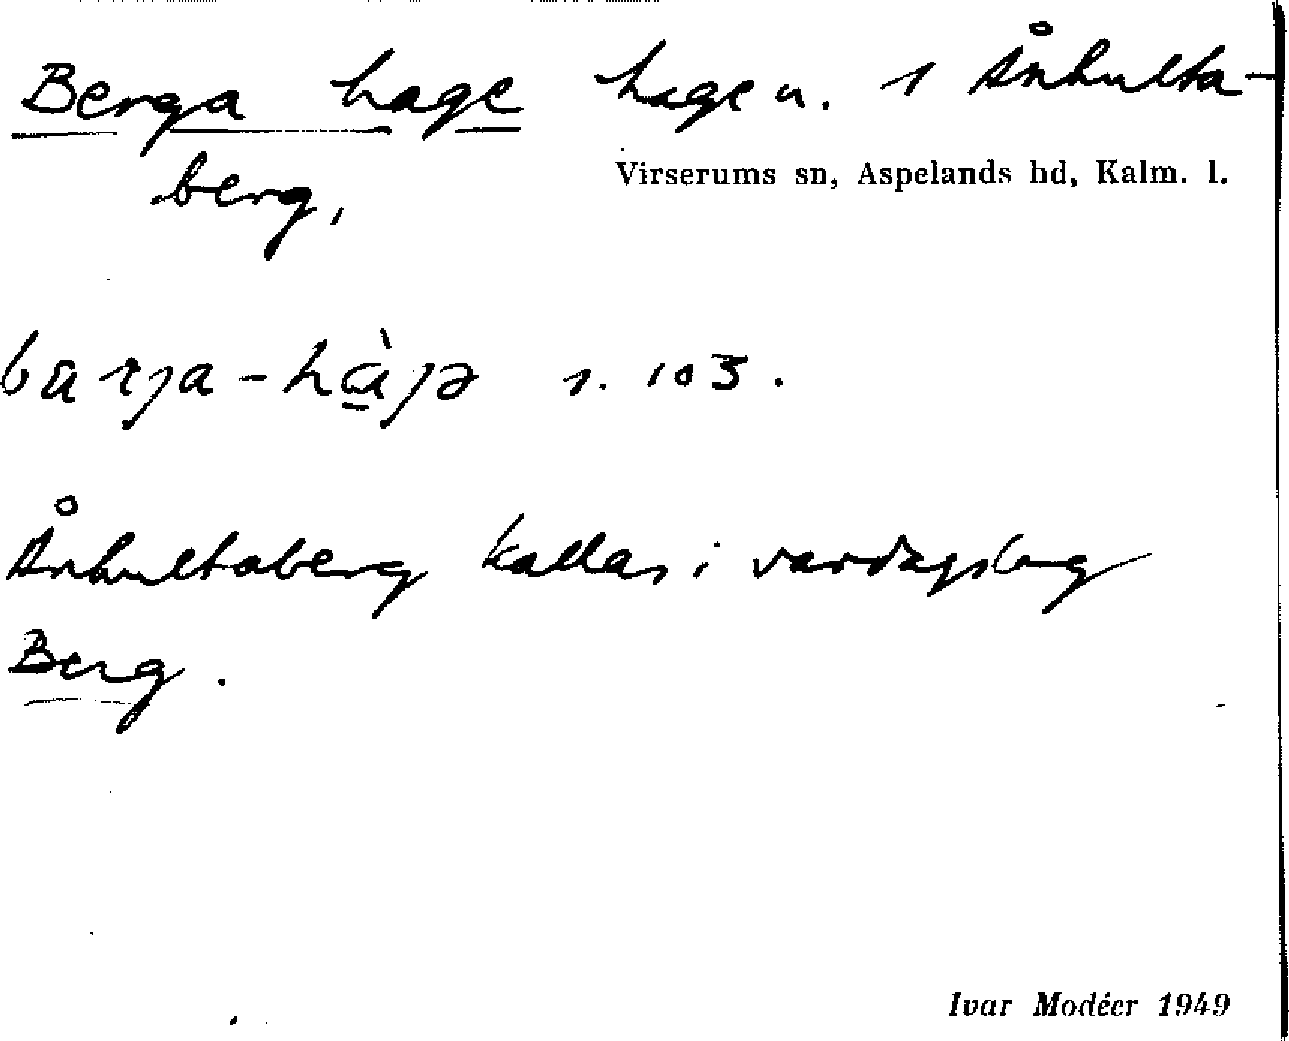 Berga hage hage n. 1 Ånhulta-
berg,
Virserums sn, Aspelands hd, Kalm. l.
barja-hàjə s. 103.
Ånhultaberg kallas i vardagslag
Berg.
Ivar Modéer 1949